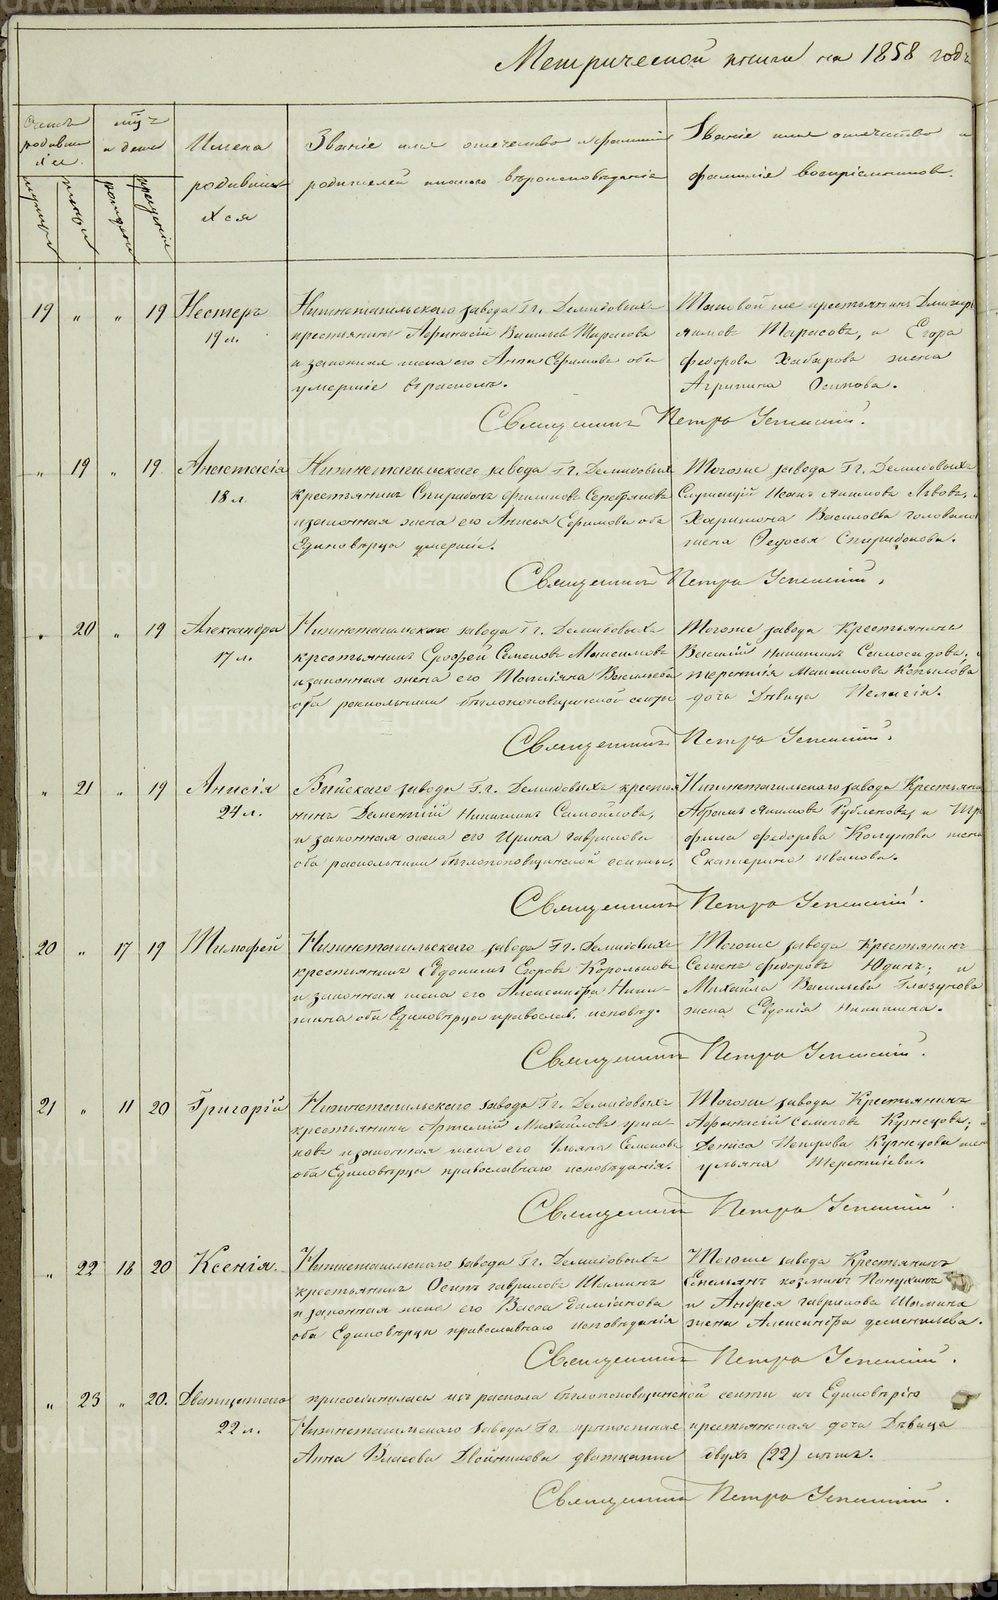 Метрической книги на 1858 годъ
Счетъ родившихся
мужеска
женска
мц̃ъ и день
рожденія
крещенія
Имена родившихся
Званіе имя отечество и фамилія
родителей и какого вѣроисповѣданія
Званіе имя отечество и
фамиліе воспріемниковъ.
19 " " 19 Несторъ
19 л.
Нижнетагильскаго завода Гг. Демидовыхъ
крестьянинъ Афанасій Васильевъ Тарасовъ
и законная жена его Анна Ефимова оба
умершіе въ расколѣ.
Таковой же крестьянинъ
Якимовъ Тарасовъ, и Егора
Федорова Хабарова жена
Агрипина Осипова.
Священникъ Петръ Успенскій.
" 19 " 19 Анастасія
18 л.
Нижнетагильскаго завода Гг. Демидовыхъ
крестьянинъ Спиридонъ Филиповъ
и законная жена его Анисья Ефимова оба
Единовѣрца умершіе.
Тогоже завода Гг. Демидовыхъ
Служащій Иванъ Якимовъ Львовъ,
Харитона Васильева
жена Федосья Спиридонова.
Священникъ Петръ Успенскій.
" 20 " 19 Александра
17 л.
Нижнетагильскаго завода Гг. Демидовыхъ
крестьянинъ Ерофей Семеновъ Максимовъ
и законная жена его Татьяна Васильева
оба раскольники бѣглопоповщинской секты
Тогоже завода Крестьянинъ
Василій Никитинъ Самосадовъ,
Терентія Максимова Копылова
дочь Дѣвица Пелагія.
Священникъ Петръ Успенскій.
" 21 " 19 Анисія
24 л.
Выйскаго завода Гг. Демидовыхъ крестья
нинъ Дементій Никитинъ Самойловъ,
и законная жена его Ирина Гаврилова
оба раскольники бѣглопоповщинской секты.
Нижнетагильскаго завода Крестьяни
Абрамъ Якимовъ Рублевъ, и Тро
фила Федорова Колунова жена
Екатерина Иванова.
Священникъ Петръ Успенскій.
20 " 17 19 Тимофей
Нижнетагильскаго завода Гг. Демидовыхъ
крестьянинъ Евдокимъ Егоровъ Корольковъ
и законная жена его Александра Ники-
тина оба Единовѣрца православ. исповѣд.
Тогоже завода Крестьянинъ
Семенъ Федоровъ Юдинъ; и
Михайла Васильева Глазунова
жена Евдокія Никитина.
Священникъ Петръ Успенскій.
21 " 11 20 Григорій
Нижнетагильскаго завода Гг. Демидовыхъ
крестьянинъ Артемій Михайловъ Уша-
ковъ и законная жена его Ульяна Семенова
оба Единовѣрца православнаго исповѣданія.
Тогоже завода Крестьянинъ
Афанасій Семеновъ Кузнецовъ;
Дениса Петрова Кузнецова жен
Ульяна Терентьева.
Священникъ Петръ Успенскій.
" 22 18 20 Ксенія.
Нижнетагильскаго завода Гг. Демидовыхъ
крестьянинъ Осипъ Гавриловъ Шаминъ
и законная жена его Васса Даміанова
оба Единовѣрцы православнаго исповѣданія
Тогоже завода Крестьянинъ
Емельянъ Козминъ
и Андрея Гаврилова Шамина
жена Александра Дементьева.
Священникъ Петръ Успенскій.
" 23 " 20. Двадцатого присоединилась изъ раскола бѣглопоповщинской секты къ Единовѣрію
22 л. Нижнетагильскаго завода Гг. крѣпостная крестьянская дочь Дѣвица
Анна Власова Двойникова двадцати двухъ (22) лѣтъ.
Священникъ Петръ Успенскій.
METRIKI.GASO-URAL.RU